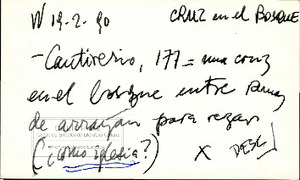 W 19-2-90 CRUZ en el BOSQUE
- Cautiverio, 177 = una cruz
en el bosque entre
de arrayán para rezar
(¿como iglesia?) X DESC